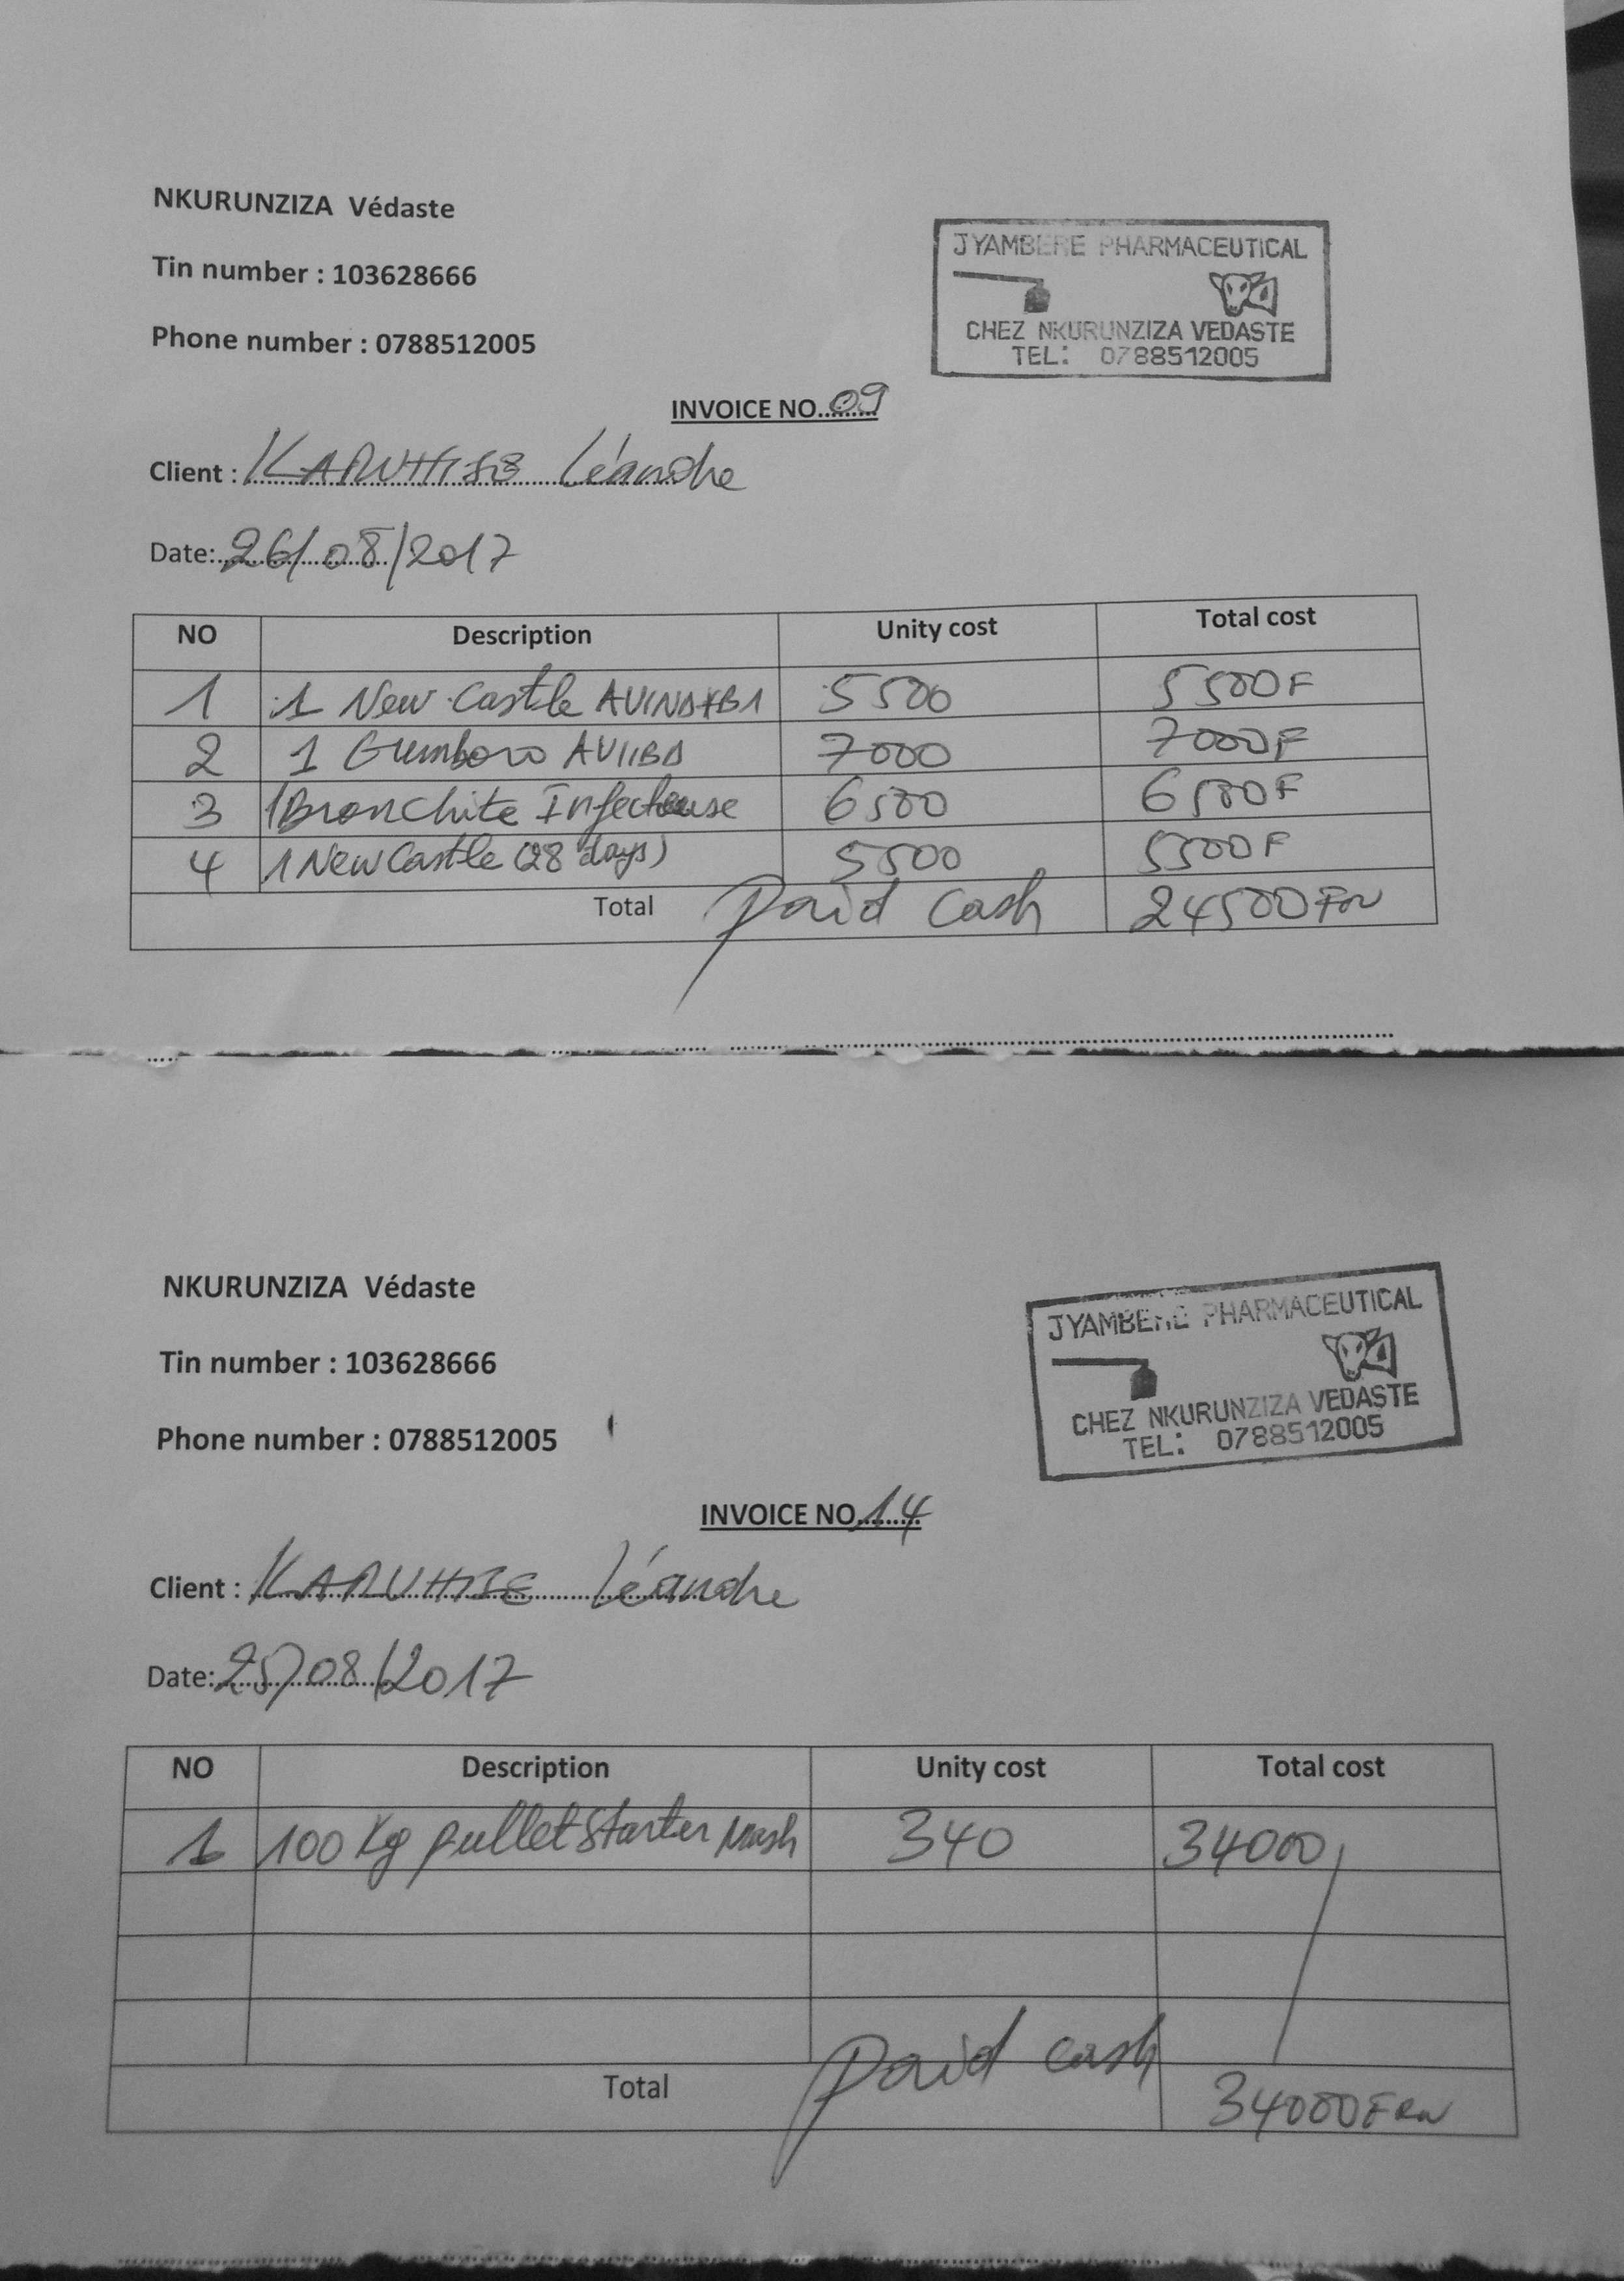 NKURUNZIZA Védaste
Tin number : 103628666
Phone number : 0788512005
JYAMBERE PHARMACEUTICAL
CHEZ NKURUNZIZA VEDASTE
TEL: 0788512005
INVOICE NO. 09
Client : Léandre
Date: 26/08/2017
NO Description Unity cost Total cost
1 1 New Castle 5500 5500F
2 1 Gumboro 7000 7000F
3 1 Bronchite Infectieuse 6500 6500F
4 1 New Castle (28 days) 5500 5500F
Total paid cash 24500 Frw
NKURUNZIZA Védaste
Tin number : 103628666
Phone number : 0788512005
JYAMBERE PHARMACEUTICAL
CHEZ NKURUNZIZA VEDASTE
TEL: 0788512005
INVOICE NO. 14
Client : KARUHIJE Léandre
Date: 25/08/2017
NO Description Unity cost Total cost
1 100 Kg pullet Starter Mash 340 34000
Total paid cash 34000 FRW